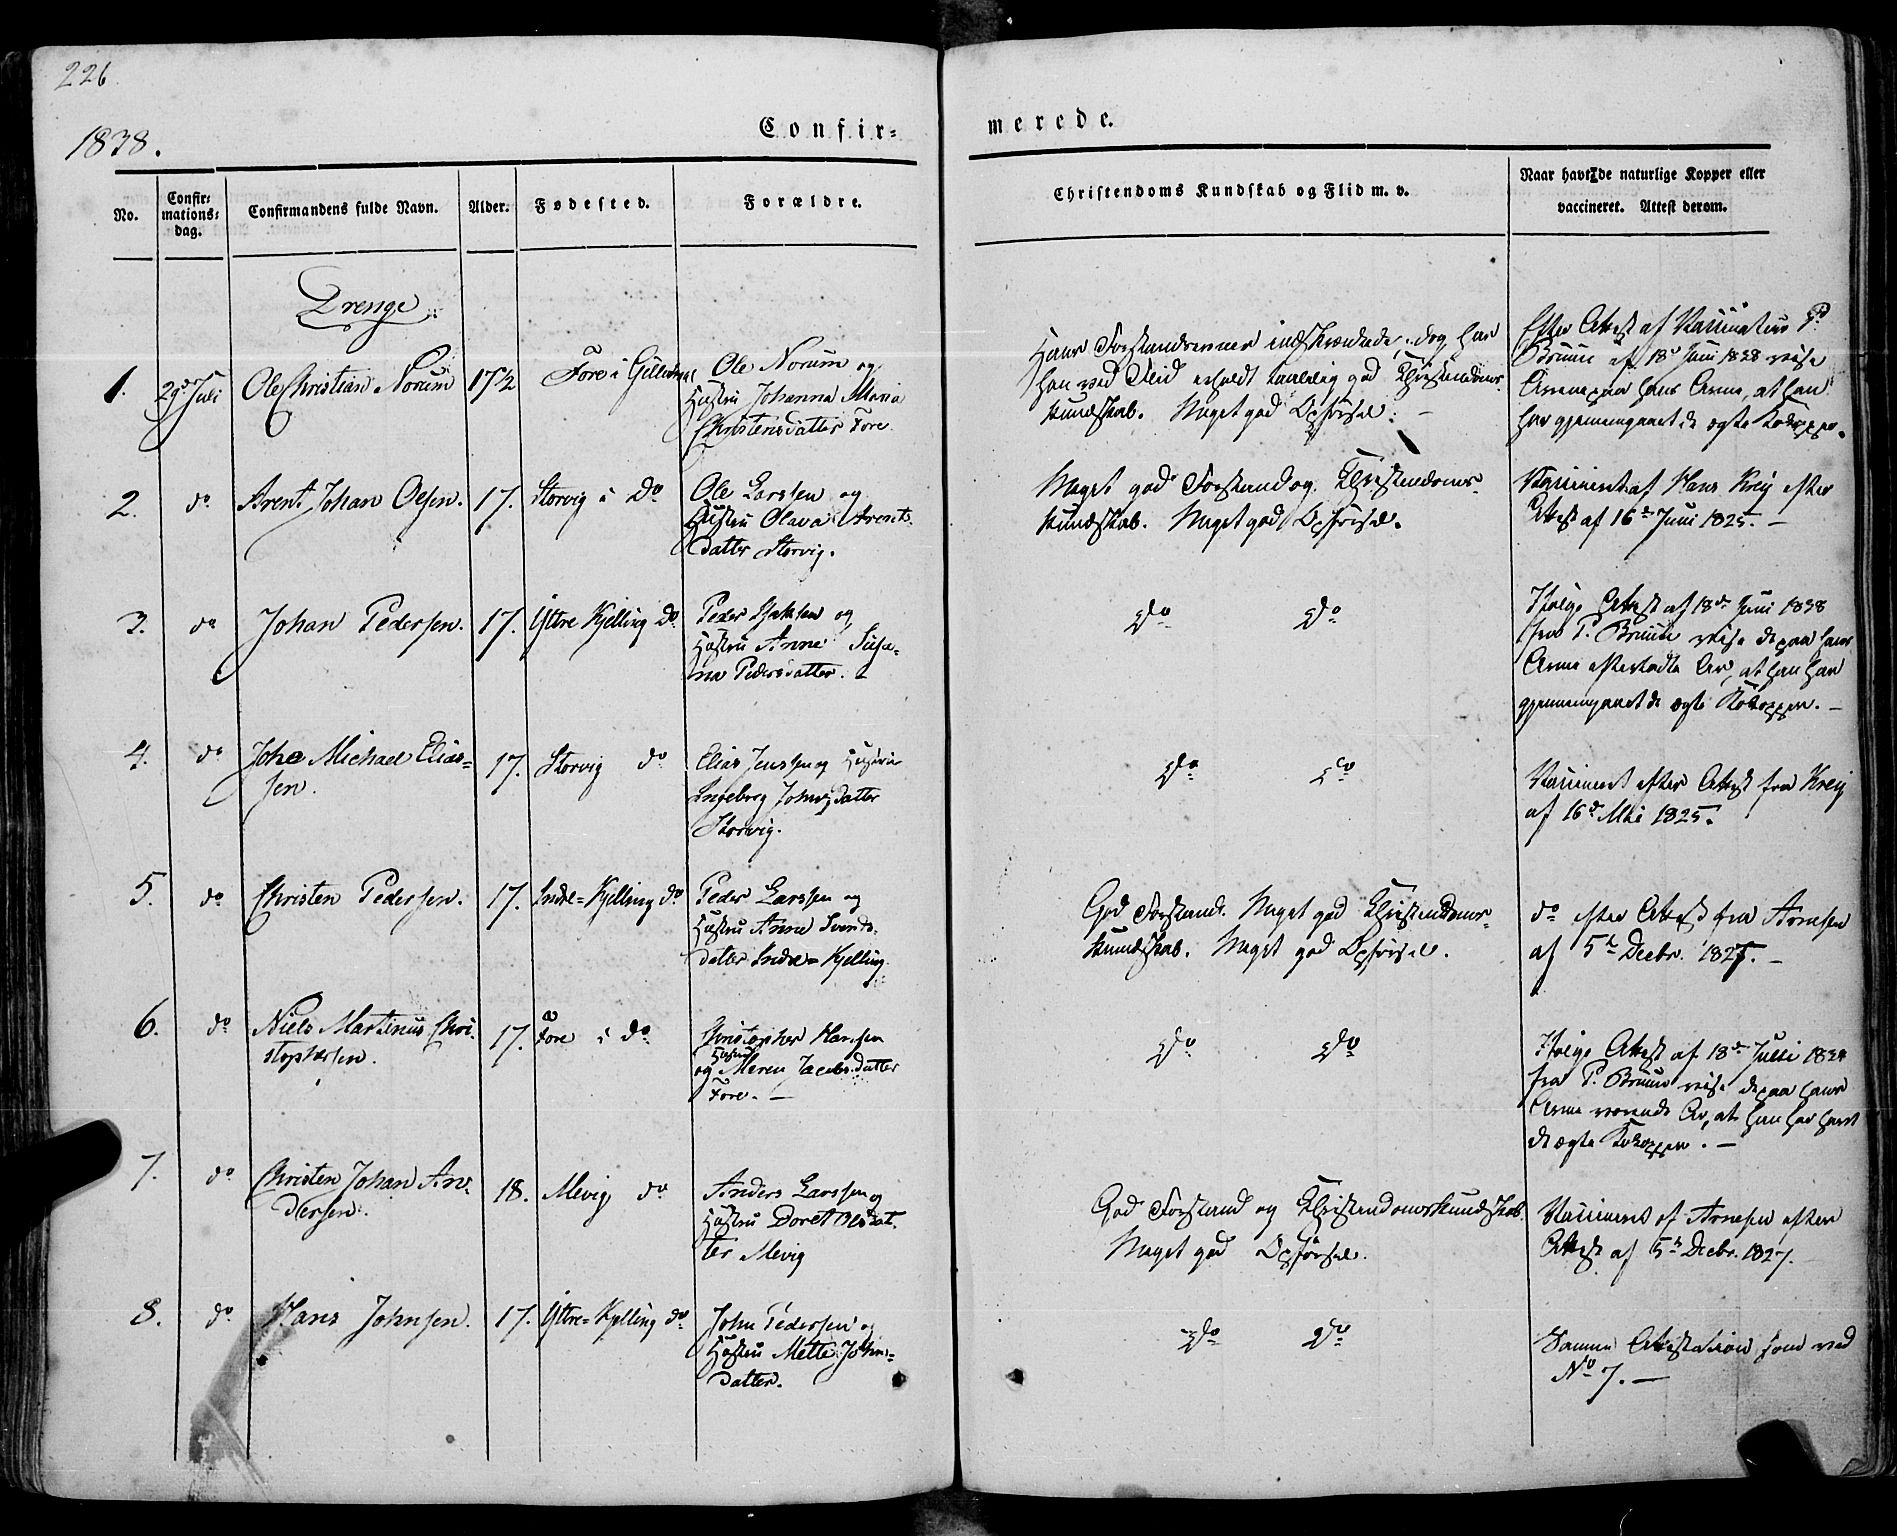 226.
1838.
Confir=
merede.
No.
Confir=
mations=
dag.
Confirmandens fulde Navn.
Alder.
Fødested.
Forældre.
Christendoms Kundskab og Flid m. v.
Naar havt de naturlige Kopper eller
vaccineret. Attest derom.
Drenge
1. 29de Juli Ole Christian Norum 17½ Fore i Ole Norum og
Hustru Johanna Maria
Christensdatter Fore
Hans Forstandsevner indskrænkede, dog har
han ved Flid erholdt taalelig god Christendoms-
kundskab. Meget god Opførsel. –
Efter Attest af Vaccinateur P.
Bruun af 18de Juni 1838 vise
Arrene paa hans Arme, at han
har gjennemgaaet de ægte Kokopper.
2. do Arent Johan Olsen. 17. Storvig i Do Ole Larssen og
Hustru Olava Arents-
datter Storvig.
Meget god Forstand og Christendoms-
kundskab. Meget god Opførsel.
Vaccineret af Hans Krey efter
Attest af 16de Juni 1825. –
3. do Johan Pedersen. 17. Ytre Kjelling Do Peder og
Hustru Anne Susa-
na Pedersdatter.
Do Do
Ifølge Attest af 18de Juni 1838
fra P. Bruun vise de paa hans
Arme efterladte Ar, at han har
gjennemgaaet de ægte Kokopper. –
4. do Michael Elias=
sen. 17. Storvig do Elias Jenssen og Hustru
Ingeborg Johnsdatter
Storvig.
Do Do
Vaccineret efter Attest fra Krey
af 16de Mai 1825.
5. do Christen Pedersen. 17. Indre=Kjelling do Peder Larssen og
Hustru Anne Svends-
datter Indre=Kjelling.
God Forstand. Meget god Christendoms-
kundskab. Meget god Opførsel.
do efter Attest fra Arnesen
af 5te Decbr. 1827. –
6. do Niels Martinus Chri-
stophersen. 17. Fore i do Christopher Hansen
og Hustru Maren Jacobsdatter
Fore. –
Do Do
Ifølge Attest af 18de
fra P. Bruun vise de paa hans
Arme værende Ar, at han har havt
de ægte Kokopper. –
7. do Christen Johan An-
dersen. 18. Mevig do Anders Larssen og
Hustru Doret Olsdat-
ter Mevig
God Forstand og Christendomskundskab.
Meget god Opførsel.
Vaccineret af Arnesen efter
Attest af 5te Decbr. 1827.
8. do Hans Johnsen. 17. Ytre=Kjelling do John Pedersen og
Hustru Mette Johns=
datter.
Do Do
Samme Attestation som ved
No 7. –